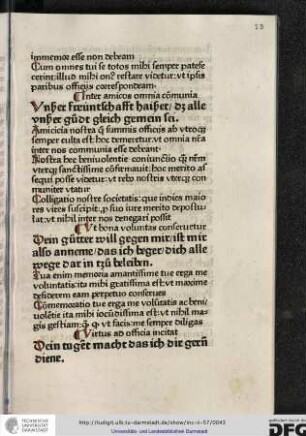 23
immemor esse non debeam
Cum omnes tui se totos mihi semper patefe
cerint: illud mihi onꝰ restare videtur: vt ipsis
paribus officijs correspondeam·
Inter amicos omnia cōmunia
Vnßer freüntschafft haißet / dz alle
vnßer gůdt gleich gemein sei.
Amicicia nostra q̄ summis officijs ab vtroqꝫ
semper culta est: hoc demeretur: vt omnia nr̄a
inter nos communia esse debeant·
Nostra hec beniuolentie coniunctio
vterqꝫ sanctissime cōfirmauit: hoc merito as
sequi posse videtur: vt rebꝰ nostris vterqꝫ com
muniter vtatur
Colligatio nostre societatis: que indies maio
res vires suscipit: ꝓ suo iure merito depostu
lat: vt nihil inter nos denegari possit
Vt bona voluntas conseruetur
Dein gütter will gegen mir / ist mir
also anneme / das ich beger / dich alle
wege dar in tzů beleiben.
Tua enim memoria amantissime tue erga me
voluntatis: ita mihi gratissima est: vt maxime
desiderem eam perpetuo conserues
Cōmemoratio tue erga me volūtatis ac beni
uolētie ita mihi iocūdissima est: vt nihil ma
gis gestiam: q̄ vt facis: me semper diligas
Virtus ad officia incitat
Dein tuget macht das ich dir gerñ
diene.
TECHNISCHE
UNIVERSITÄT
DARMSTADT
http://tudigit.ulb.tu-darmstadt.de/show/inc-ii-57/0043
Universitäts- und Landesbibliothek Darmstadt
DFG